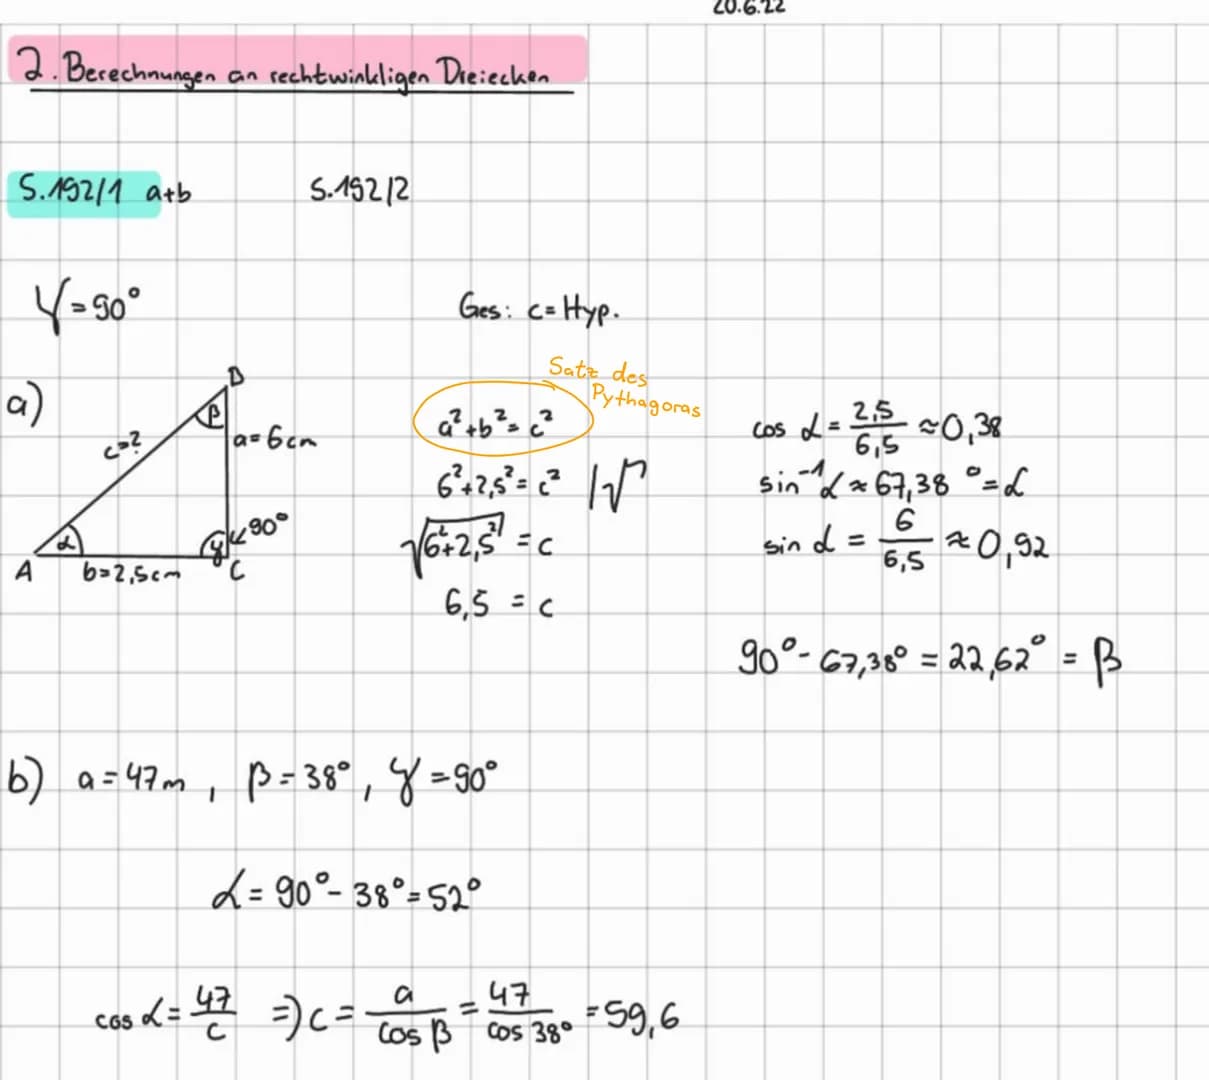 20.6.22
2. Berechnungen an rechtwinkligen Dreiecken
S.192/1 a+b
S.192/2
γ = 90°
Ges: c = Hyp.
a)
B
β
c=?
a = 6cm
90°
α
γ
A
b=2,5cm
C
Satz des
Pythagoras
a² + b² = c²
6² + 2,5² = c² |√
√6² + 2,5² = c
6,5 = c
cos α = 2,5/6,5 ≈ 0,38
sin⁻¹ α ≈ 67,38° = α
sin α = 6/6,5 ≈ 0,92
90° - 67,38° = 22,62° = β
b) a = 47m, β = 38°, γ = 90°
α = 90° - 38° = 52°
cos α = 47/c ⇒ c = a/cos β = 47/cos 38° = 59,6